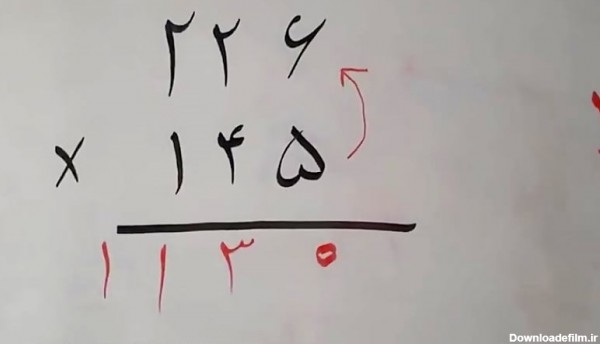 ۲۲۶
× ۱۴۵
۱۱۳۰
Downloadefilm.ir